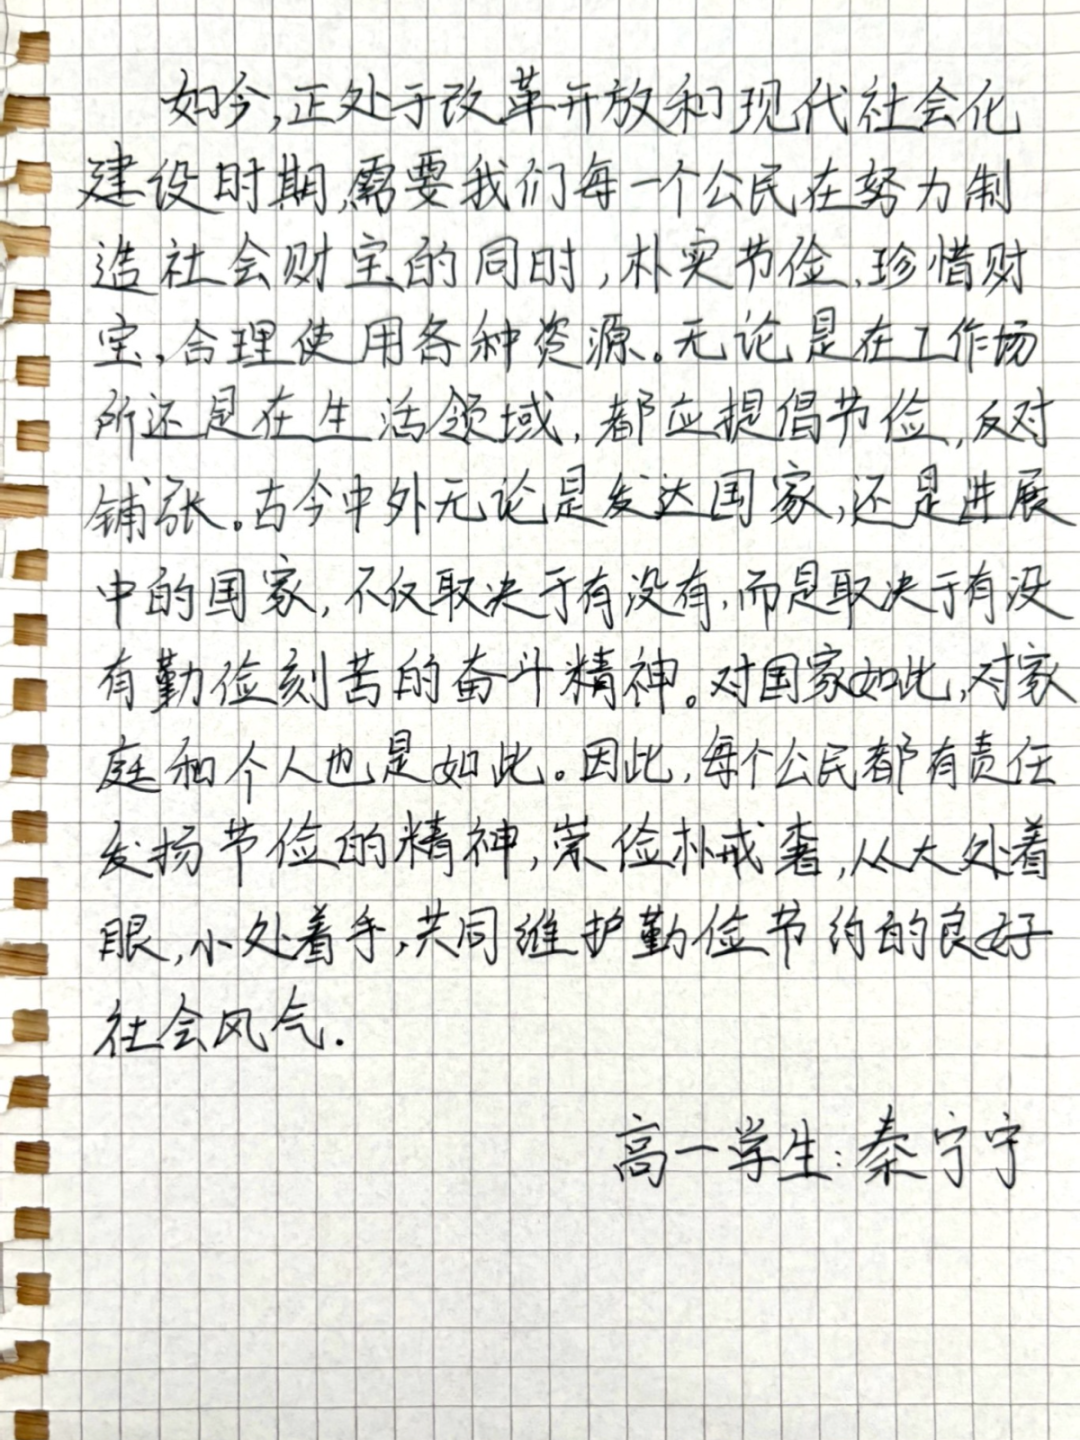 如今,正处于改革开放和现代社会化
建设时期,需要我们每一个公民在努力制
造社会财宝的同时,朴实节俭,珍惜财
宝,合理使用各种资源。无论是在工作场
所还是在生活领域,都应提倡节俭,反对
铺张。古今中外无论是发达国家,还是进展
中的国家,不仅取决于有没有,而是取决于有没
有勤俭刻苦的奋斗精神。对国家如此,对家
庭和个人也是如此。因此,每个公民都有责任
发扬节俭的精神,崇俭朴戒奢,从大处着
眼,小处着手,共同维护勤俭节约的良好
社会风气.
高一学生:秦宁宁